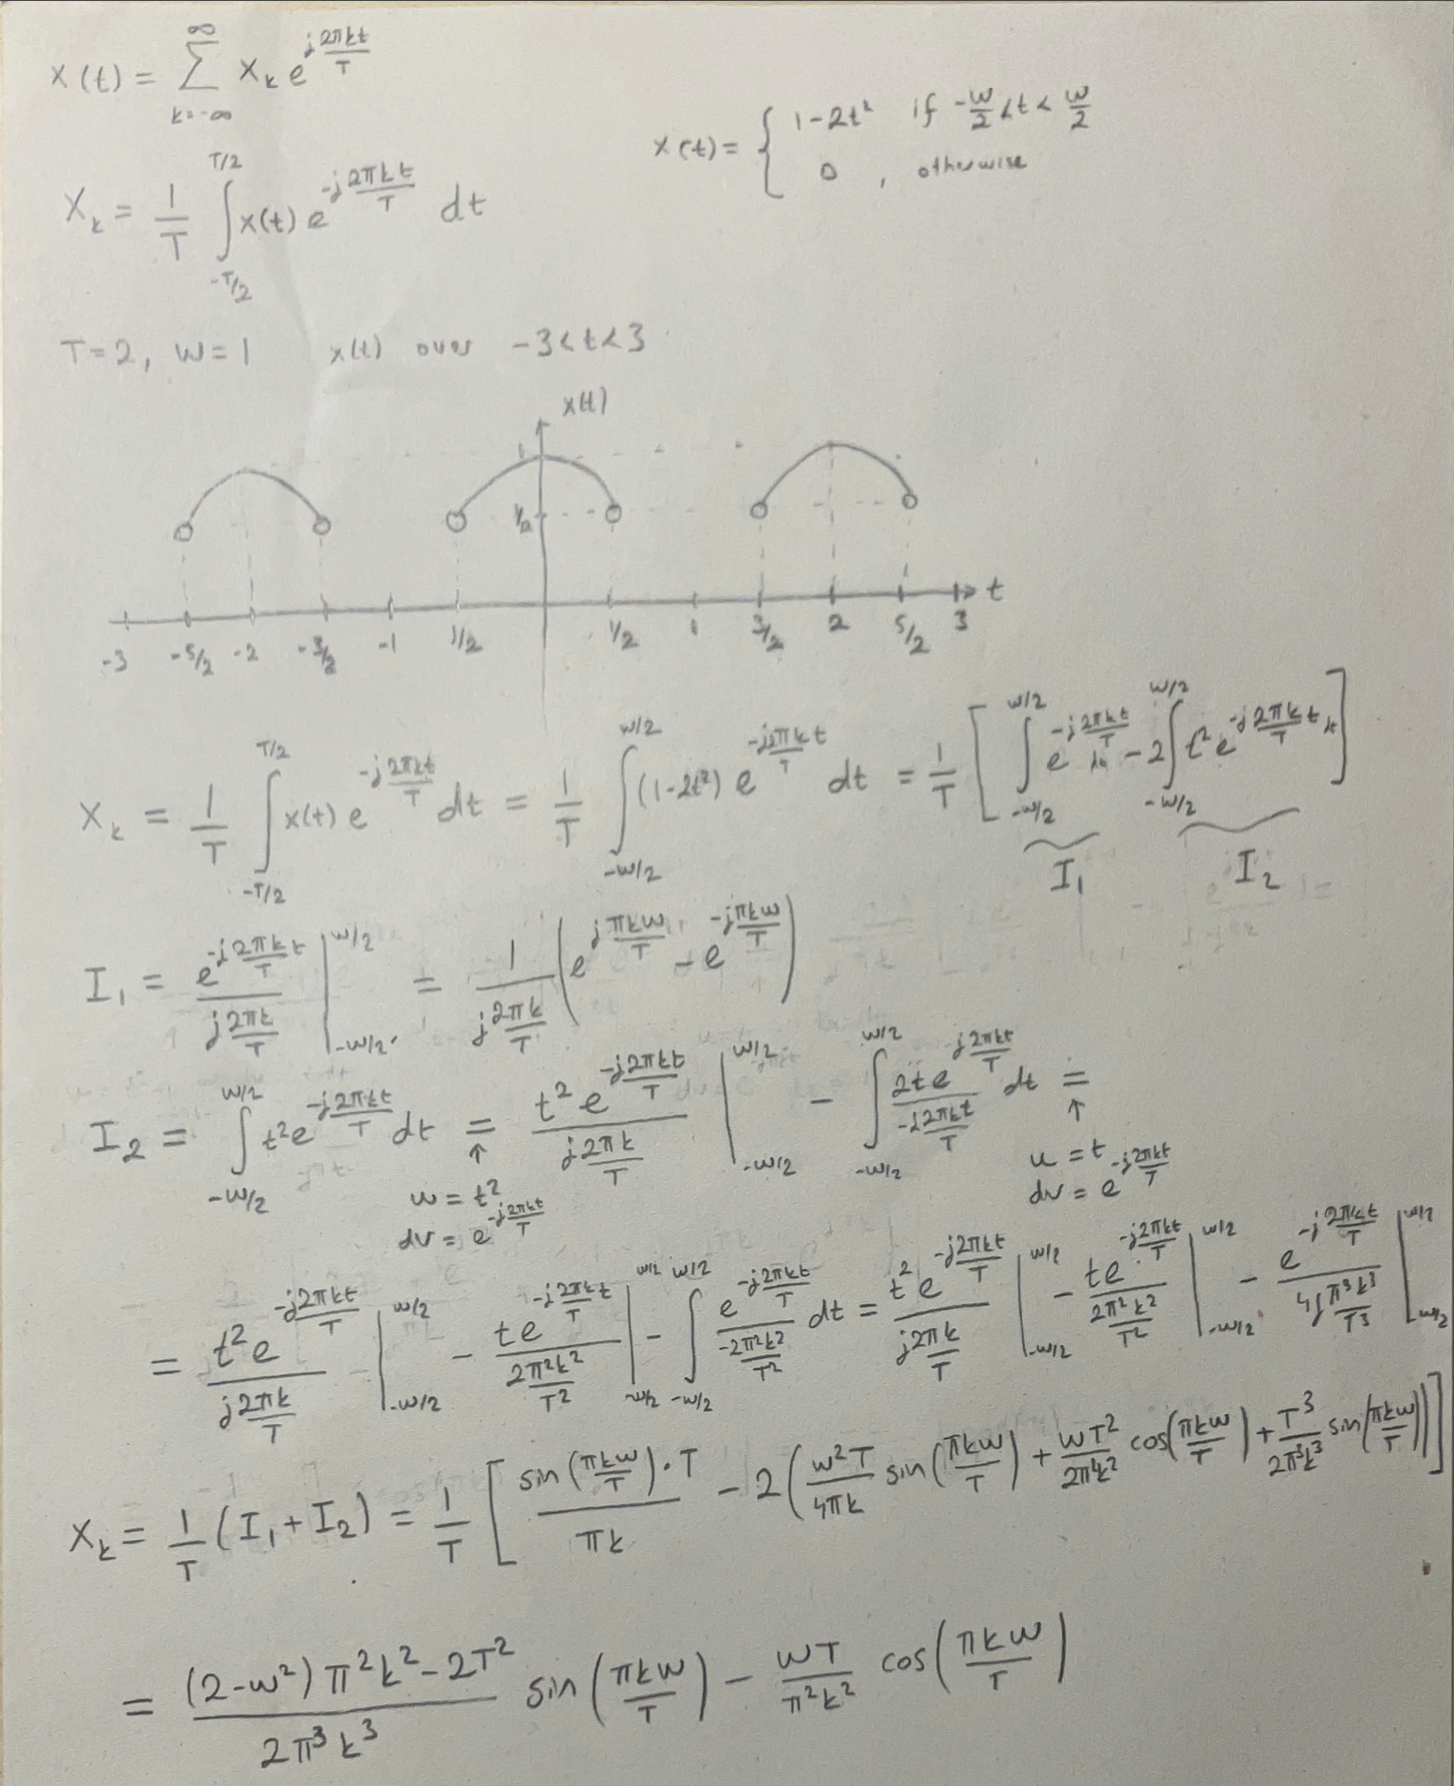 x(t) = ∑_{k=-∞}^{∞} X_k e^{j 2πkt/T}
x(t) = { 1-2t² if -w/2 < t < w/2
0 , otherwise
X_k = 1/T ∫_{-T/2}^{T/2} x(t) e^{-j 2πkt/T} dt
T=2, w=1 x(t) over -3<t<3
x(t)
1
1/2
t
-3 -5/2 -2 -3/2 -1 1/2 1/2 1 3/2 2 5/2 3
X_k = 1/T ∫_{-T/2}^{T/2} x(t) e^{-j 2πkt/T} dt = 1/T ∫_{-w/2}^{w/2} (1-2t²) e^{-j 2πkt/T} dt = 1/T [ ∫_{-w/2}^{w/2} e^{-j 2πkt/T} dt - 2 ∫_{-w/2}^{w/2} t² e^{-j 2πkt/T} dt ]
I₁ I₂
I₁ = e^{-j 2πkt/T} / (j 2πk/T) |_{-w/2}^{w/2} = 1/(j 2πk/T) ( e^{j πkw/T} - e^{-j πkw/T} )
I₂ = ∫_{-w/2}^{w/2} t² e^{-j 2πkt/T} dt = t² e^{-j 2πkt/T} / (j 2πk/T) |_{-w/2}^{w/2} - ∫_{-w/2}^{w/2} 2t e^{-j 2πkt/T} / (-j 2πkt/T) dt =
↑ ↑
u = t² u = t
dv = e^{-j 2πkt/T} dv = e^{-j 2πkt/T}
= t² e^{-j 2πkt/T} / (j 2πk/T) |_{-w/2}^{w/2} - t e^{-j 2πkt/T} / (2π²k²/T²) |_{-w/2}^{w/2} - ∫_{-w/2}^{w/2} e^{-j 2πkt/T} / (-2π²k²/T²) dt = t² e^{-j 2πkt/T} / (j 2πk/T) |_{-w/2}^{w/2} - t e^{-j 2πkt/T} / (2π²k²/T²) |_{-w/2}^{w/2} - e^{-j 2πkt/T} / (4j π³k³/T³) |_{-w/2}^{w/2}
X_k = 1/T (I₁ + I₂) = 1/T [ sin(πkw/T)·T / πk - 2( w²T/4πk sin(πkw/T) + wT²/2π²k² cos(πkw/T) + T³/2π³k³ sin(πkw/T) ) ]
= ((2-w²)π²k² - 2T²) / 2π³k³ sin(πkw/T) - wT/π²k² cos(πkw/T)